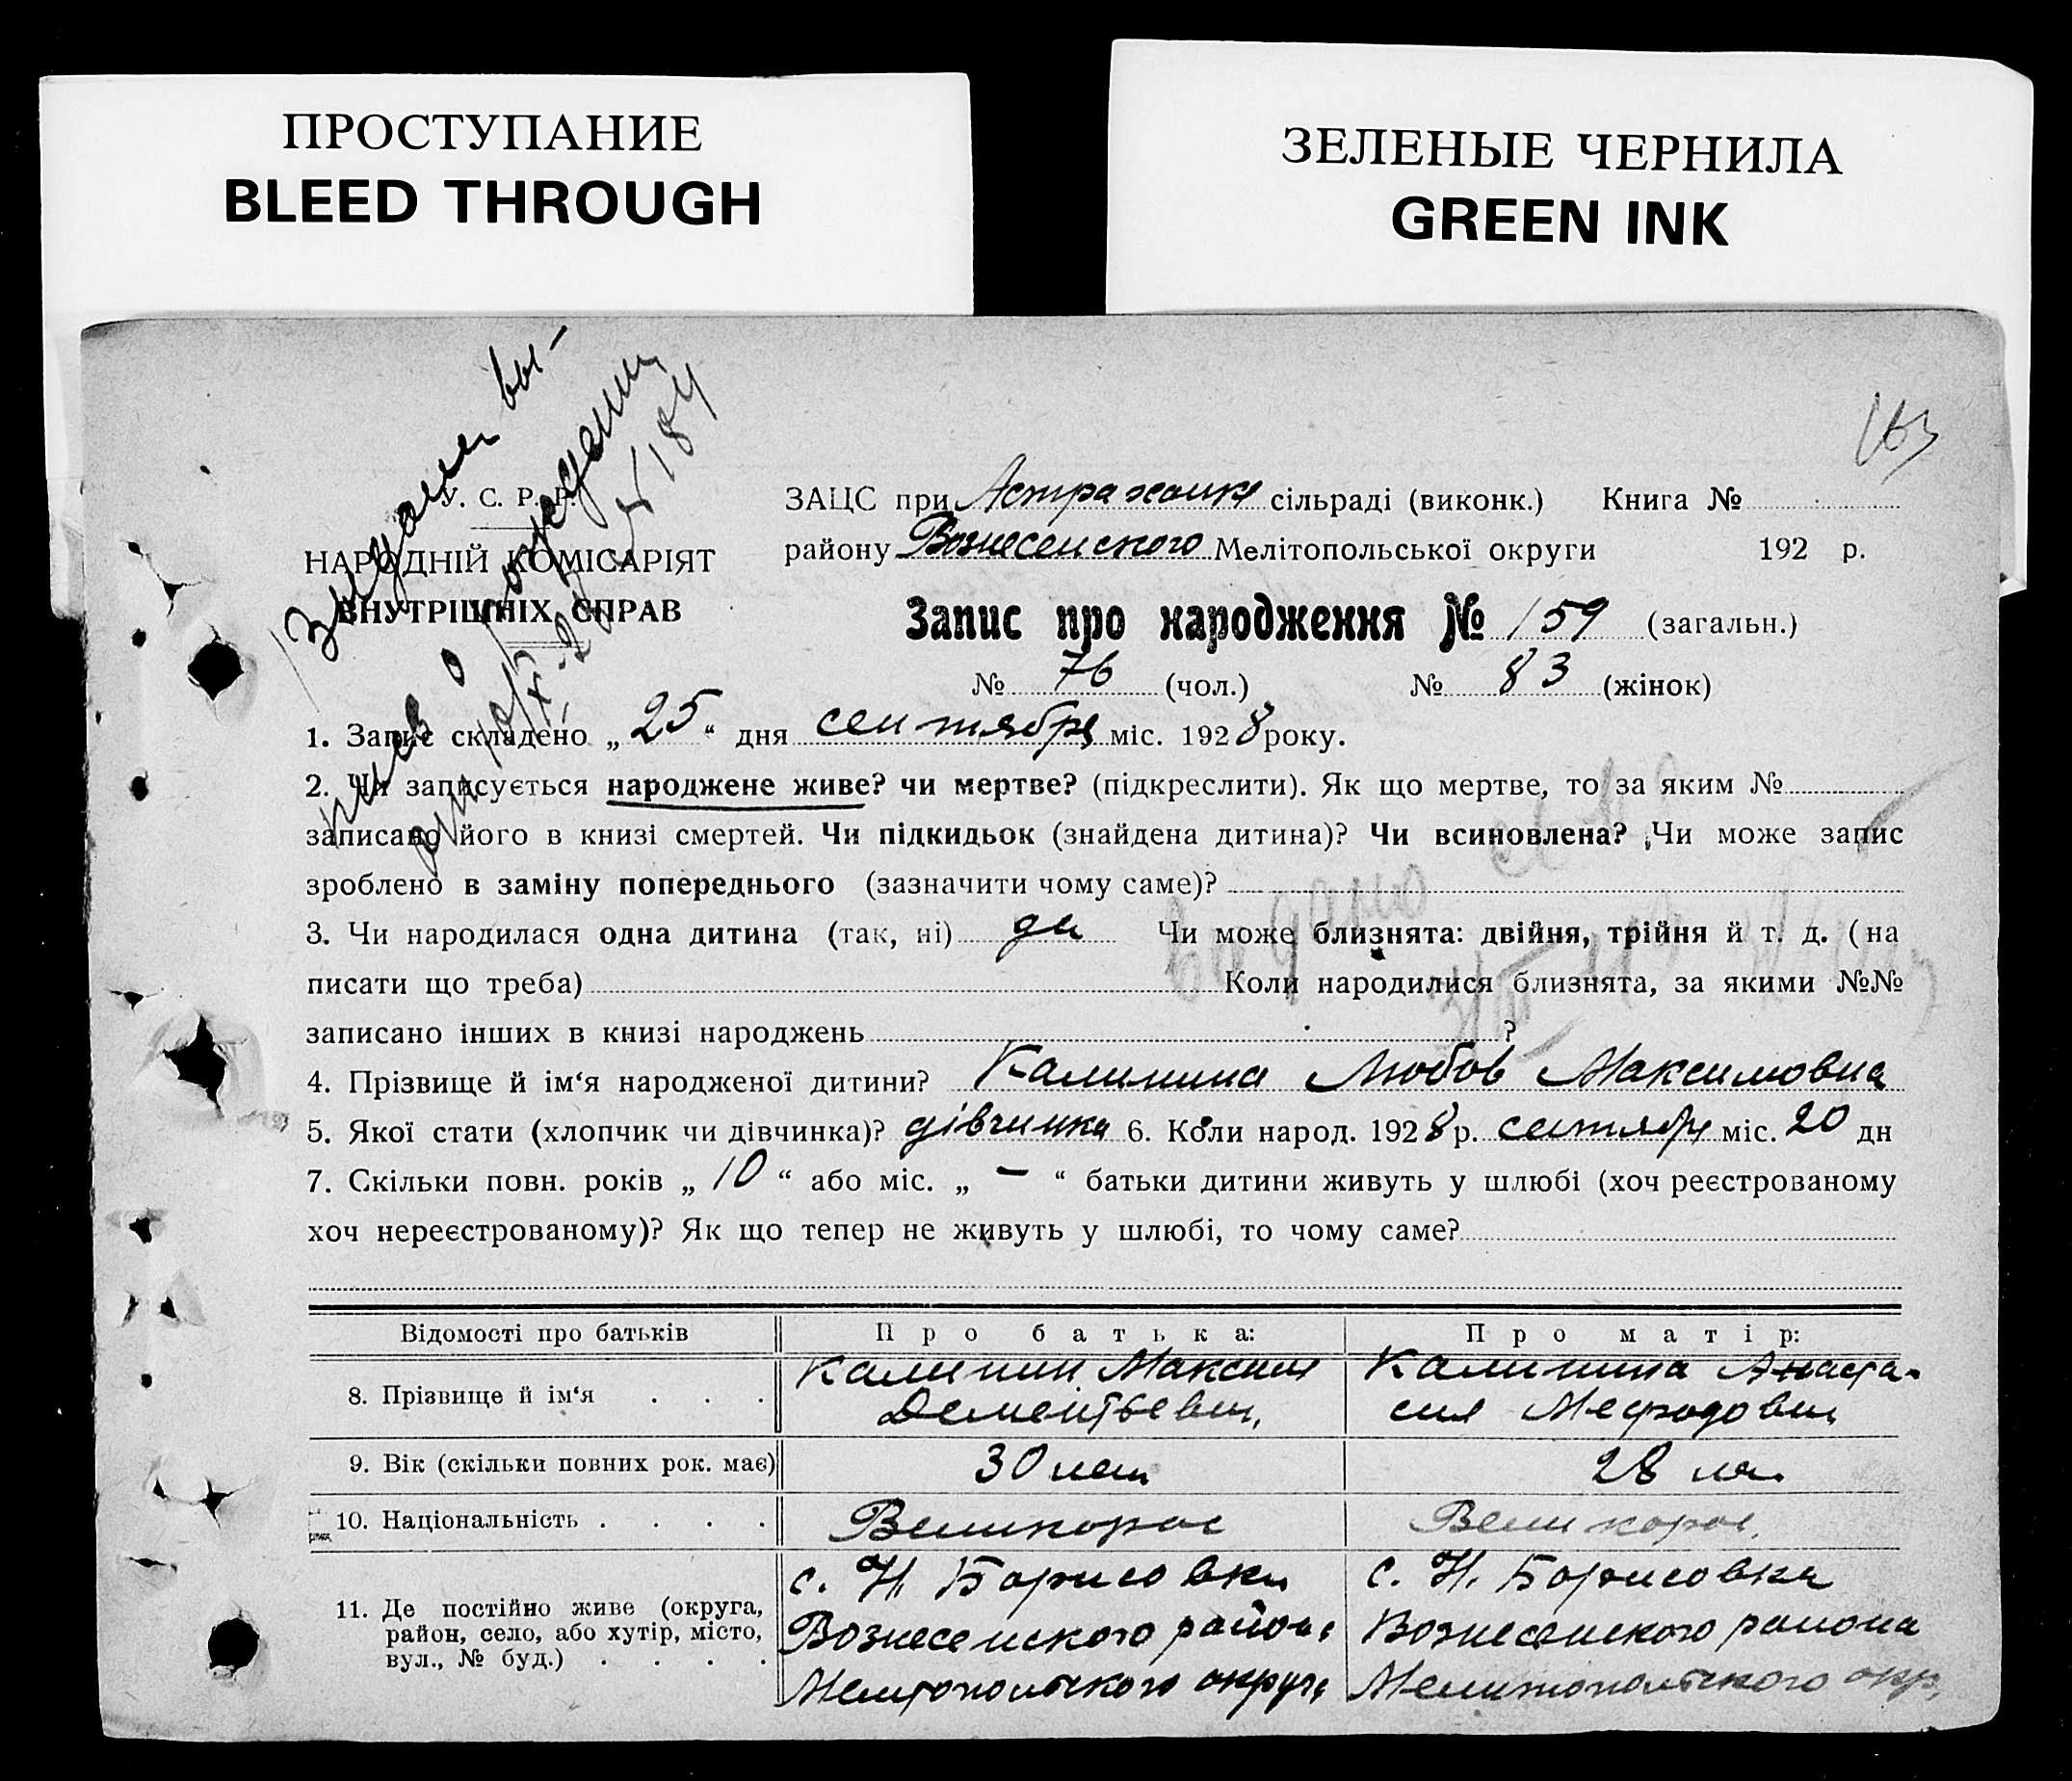 ПРОСТУПАНИЕ
BLEED THROUGH
ЗЕЛЕНЫЕ ЧЕРНИЛА
GREEN INK
163
У. С. Р. Р.
НАРОДНІЙ КОМІСАРІЯТ
ВНУТРІШНІХ СПРАВ
ЗАЦС при Астраханке сільраді (виконк.) Книга №
району Вознесенского Мелітопольської округи 192 р.
Запис про народження № 159 (загальн.)
№ 76 (чол.) № 83 (жінок)
1. Запис складено „ 25 “ дня сентября міс. 1928 року.
2. Чи записується народжене живе? чи мертве? (підкреслити). Як що мертве, то за яким №
записано його в книзі смертей. Чи підкидьок (знайдена дитина)? Чи всиновлена? Чи може запис
зроблено в заміну попереднього (зазначити чому саме)?
3. Чи народилася одна дитина (так, ні) да Чи може близнята: двійня, трійня й т. д. (на
писати що треба) Коли народилися близнята, за якими №№
записано інших в книзі народжень ?
4. Прізвище й ім‘я народженої дитини? Калинина Любов Максимовна
5. Якої стати (хлопчик чи дівчинка)? дівчинка 6. Коли народ. 1928 р. сентября міс. 20 дн
7. Скільки повн. років „ 10 “ або міс. „ – “ батьки дитини живуть у шлюбі (хоч реєстрованому
хоч нереєстрованому)? Як що тепер не живуть у шлюбі, то чому саме?
Відомості про батьків Про батька: Про матір:
8. Прізвище й ім‘я . . . Калинин Максим Калинина Анаста-
Дементьевич сия Мефодовн
9. Вік (скільки повних рок. має) 30 лет 28 лет
10. Національність . . . . Великорос Великорос.
11. Де постійно живе (округа, с. Н. Борисовки с. Н. Борисовка
район, село, або хутір, місто, Вознесенского района Вознесенского района
вул., № буд.) . . . . Мелитопольского округа Мелитопольского окр.